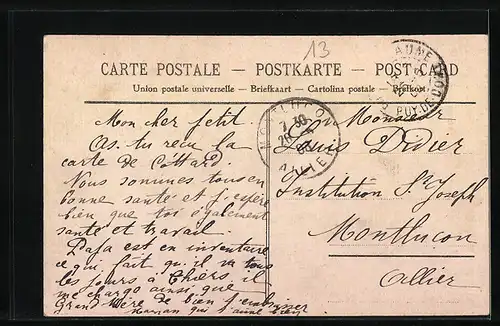 13
CARTE POSTALE — POSTKARTE — POST CARD
Union postale universelle — Briefkaart — Cartolina postale — Brefkort
PUY-DE-DOME
MONTLUÇON
ALLIER
Mon cher petit
As-tu recu la
carte de Cottard.
Nous sommes tous en
bonne santé et j'espère
bien que toi également
santé et travail.
Papa est en inventaire
ce qui fait qu'il va tous
les jours à Thiers il
me charge ainsi que
Grand Mère de bien t'embrasser
Maman qui t'aime bien
Mon Monsieur
Louis Didier
Institution St Joseph
Montluçon
Allier